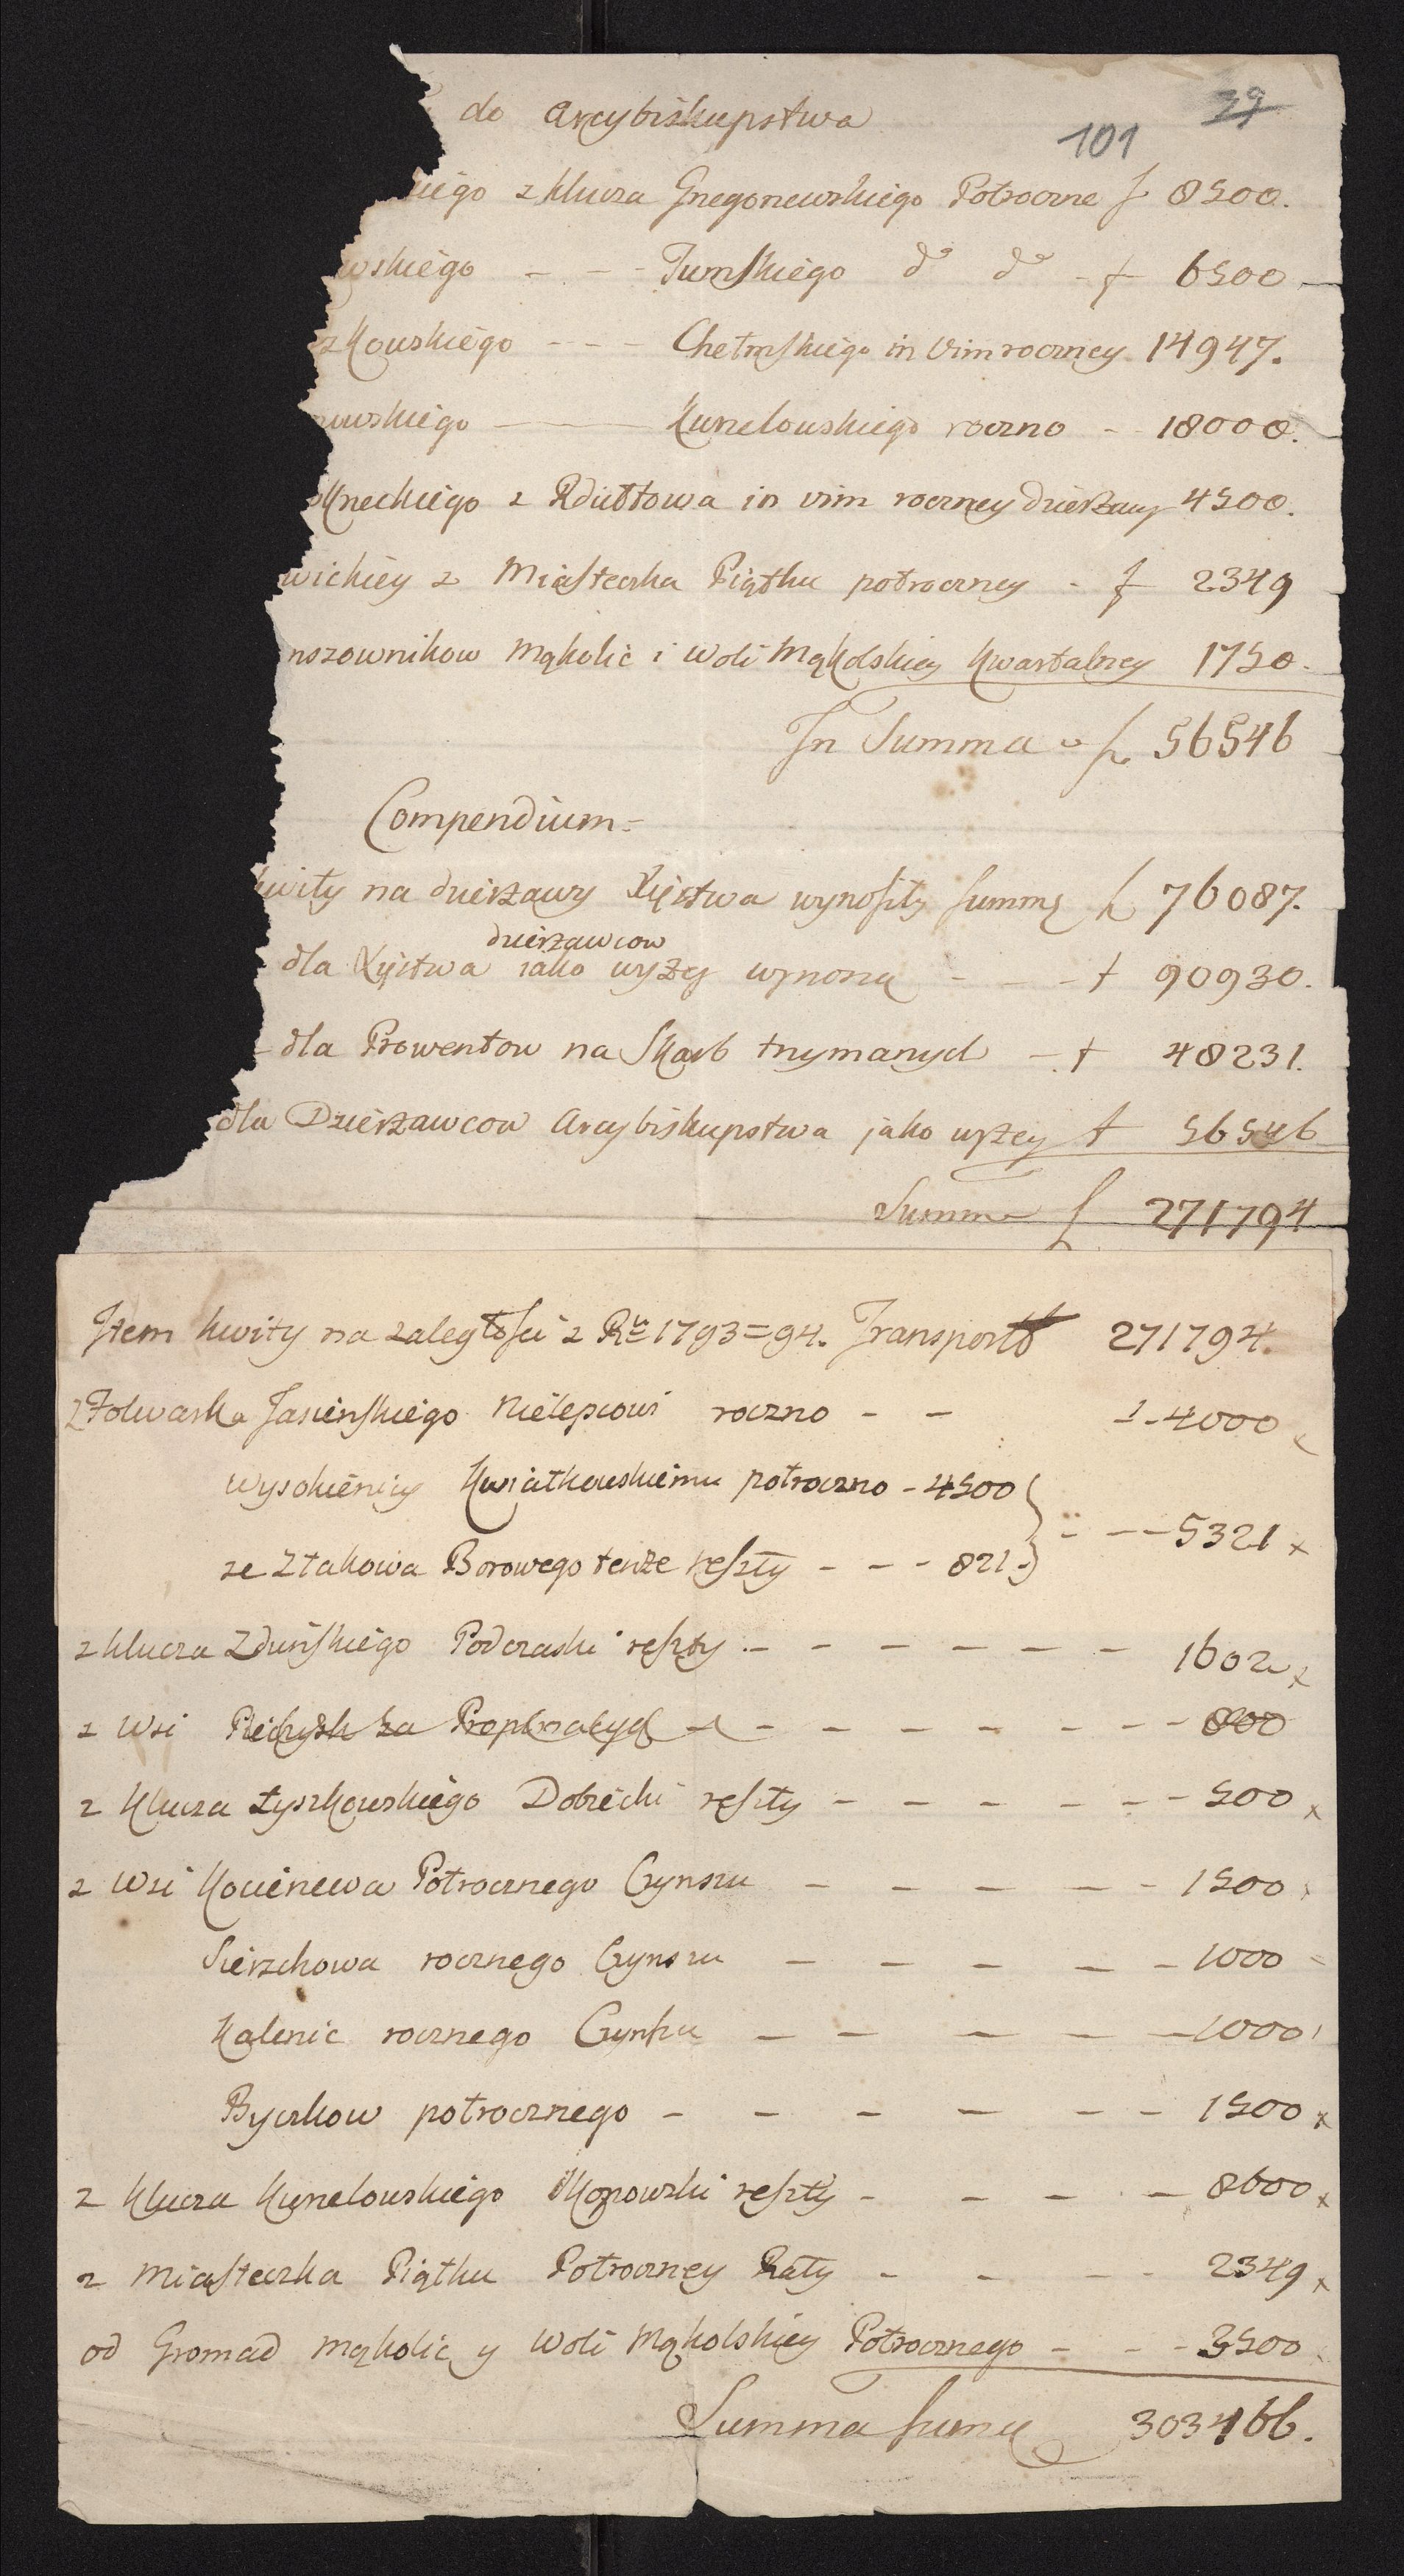 do Arcybiskupstwa
39
101
kiego z klucza Grzegorzewskiego Potroczne f 8500.
wskiego - - - Tumskiego do do - f 6500 -
zkowskiego - - - Chełmskiego in vim roczney 14947.
nowskiego - Kurzelowskiego roczno - 18000.
okrzeckiego z Rdułtowa in vim roczney dzierżawy 4500.
wickiey z Miasteczka Piątku potroczney - f 2349
nszownikow Mąkolic i Woli Mąkolskiey Kwartalney 1750.
In Summa - f 56546
Compendium =
kwity na dzierżawy Xięstwa wynosiły summę f 76087.
dzierzawcow
dla Xięstwa iako wyżey wynoszą - - - f 90930.
- dla Prowentow na Skarb trzymanych - f 48231.
dla Dzierżawcow Arcybiskupstwa jako wyżey f 56546
Summa f 271794
Item kwity na zaległości z Rku 1793=94. Transport 271794.
z Folwarku Jasieńskiego Nielepcowi roczno - - f - 4000
Wysokienicy Kwiatkowskiemu potroczno - 4500
- - - 5321 x
ze Złakowa Borowego tenże reszty - - - 821.
z klucza Zduńskiego Podczaski reszty - - - - - - 1602 x
z Wsi - - - - - - - 800
z Klucza Łyszkowskiego Dobiecki reszty - - - - - - 500 x
z Wsi Kocierzewa Potrocznego Czynszu - - - - - 1500
Sierzchowa rocznego Czynszu - - - - - 1000
Kalenic rocznego Czynszu - - - - - 1000
Byczkow potrocznego - - - - - - 1500 x
z Klucza Kurzelowskiego reszty - - - - 8600 x
z Miasteczka Piątku Potroczney Raty - - - - 2349 x
od Gromad Mąkolic y Woli Mąkolskiey Potrocznego - - - 3500
Summa Summ 303466.